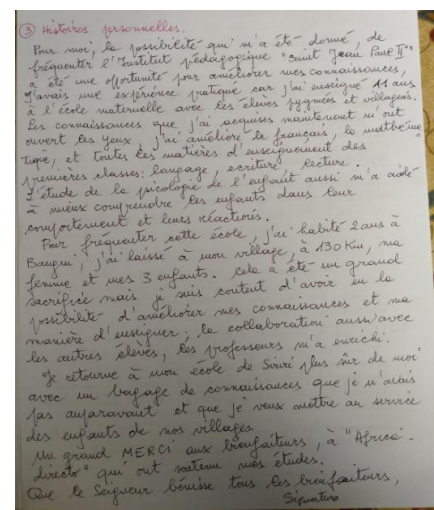 ③ Histoires personnelles.
Pour moi, la possibilité qui m'a été donné, de
fréquenter l'Institut pédagogique "Saint Jean Paul II"
a été une opportunité pour améliorer mes connaissances,
J'avais une expérience pratique car j'ai enseigné 11 ans
à l'école maternelle avec les élèves pygmées et villageois.
Les connaissances que j'ai acquises maintenant m'ont
ouvert les yeux, j'ai amélioré le français, la mathéma-
tique, et toutes les matières d'enseignement des
premières classes: langage, ecriture lecture.
L'étude de la psicologie de l'enfant aussi m'a aidé
à mieux comprendre les enfants dans leur
comportement et leurs réactions.
Pour fréquenter cette école, j'ai habité 2 ans à
Bangui, j'ai laissé à mon village, à 130 Km, ma
femme et mes 3 enfants. Cela a été un grand
sacrifice mais je suis content d'avoir eu la
possibilité d'améliorer mes connaissances et ma
manière d'enseigner; la collaboration aussi avec
les autres élèves, les professeurs m'a enrichi.
Je retourne à mon école de plus sûr de moi
avec un bagage de connaissances que je n'avais
pas auparavant et que je veux mettre au service
des enfants de nos villages
Un grand MERCI aux bienfaiteurs, à "Africa-
directo" qui ont soutenu mes études.
Que le Seigneur bénisse tous les bienfaiteurs,
Signature